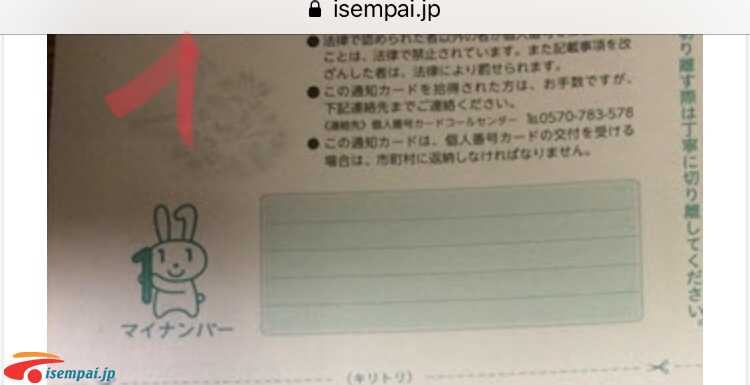 isempai.jp
1
● 法律で認められた者以外の者が個人番号を
ことは、法律で禁止されています。また記載事項を改
ざんした者は、法律により罰せられます。
● この通知カードを拾得された方は、お手数ですが、
下記連絡先までご連絡ください。
《連絡先》個人番号カードコールセンター ℡0570-783-578
● この通知カードは、個人番号カードの交付を受ける
場合は、市町村に返納しなければなりません。
り離す際は丁寧に切り離してください。
1
マイナンバー
(キリトリ)
isempai.jp